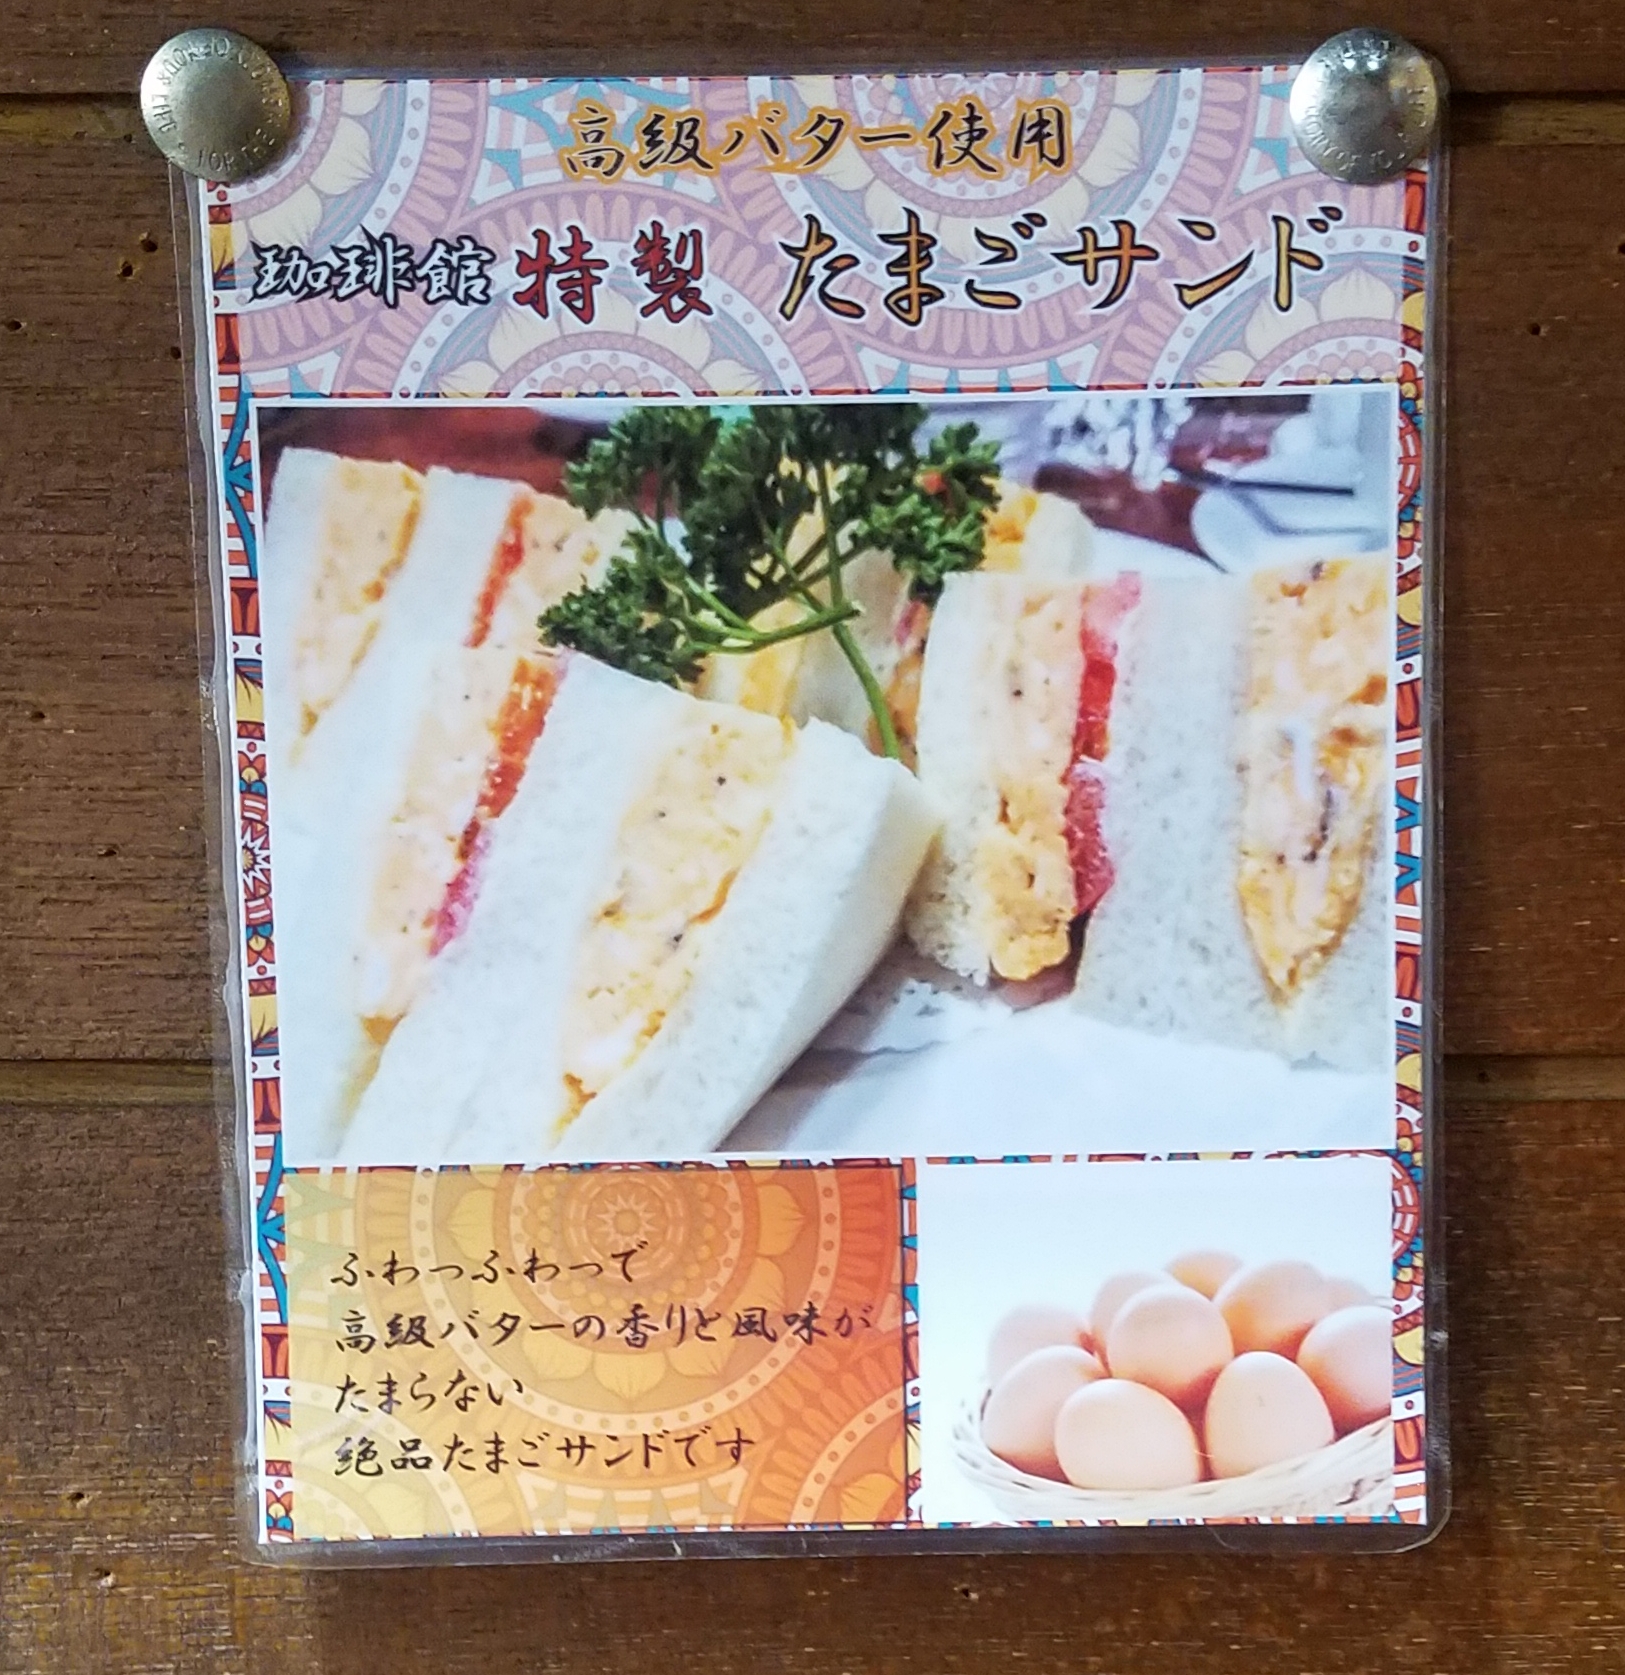 高級バター使用
珈琲館 特製 たまごサンド
ふわっふわっで
高級バターの香りと風味が
たまらない
絶品たまごサンドです